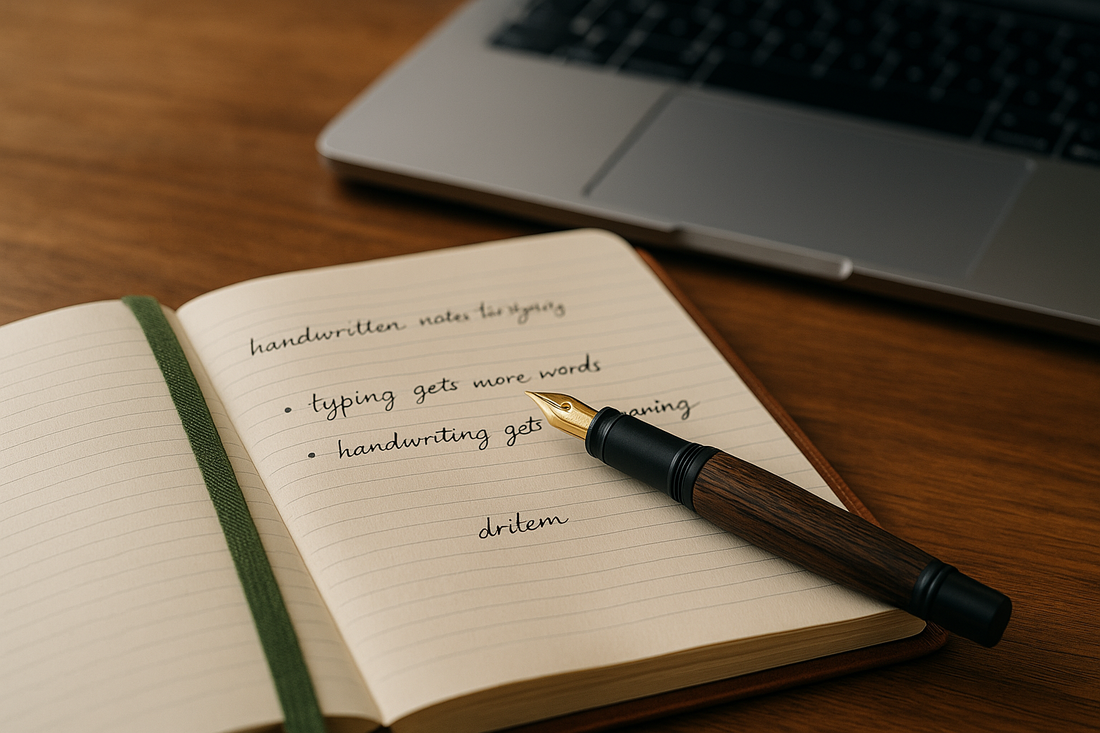 handwritten notes
• typing gets more words
• handwriting gets
dritem